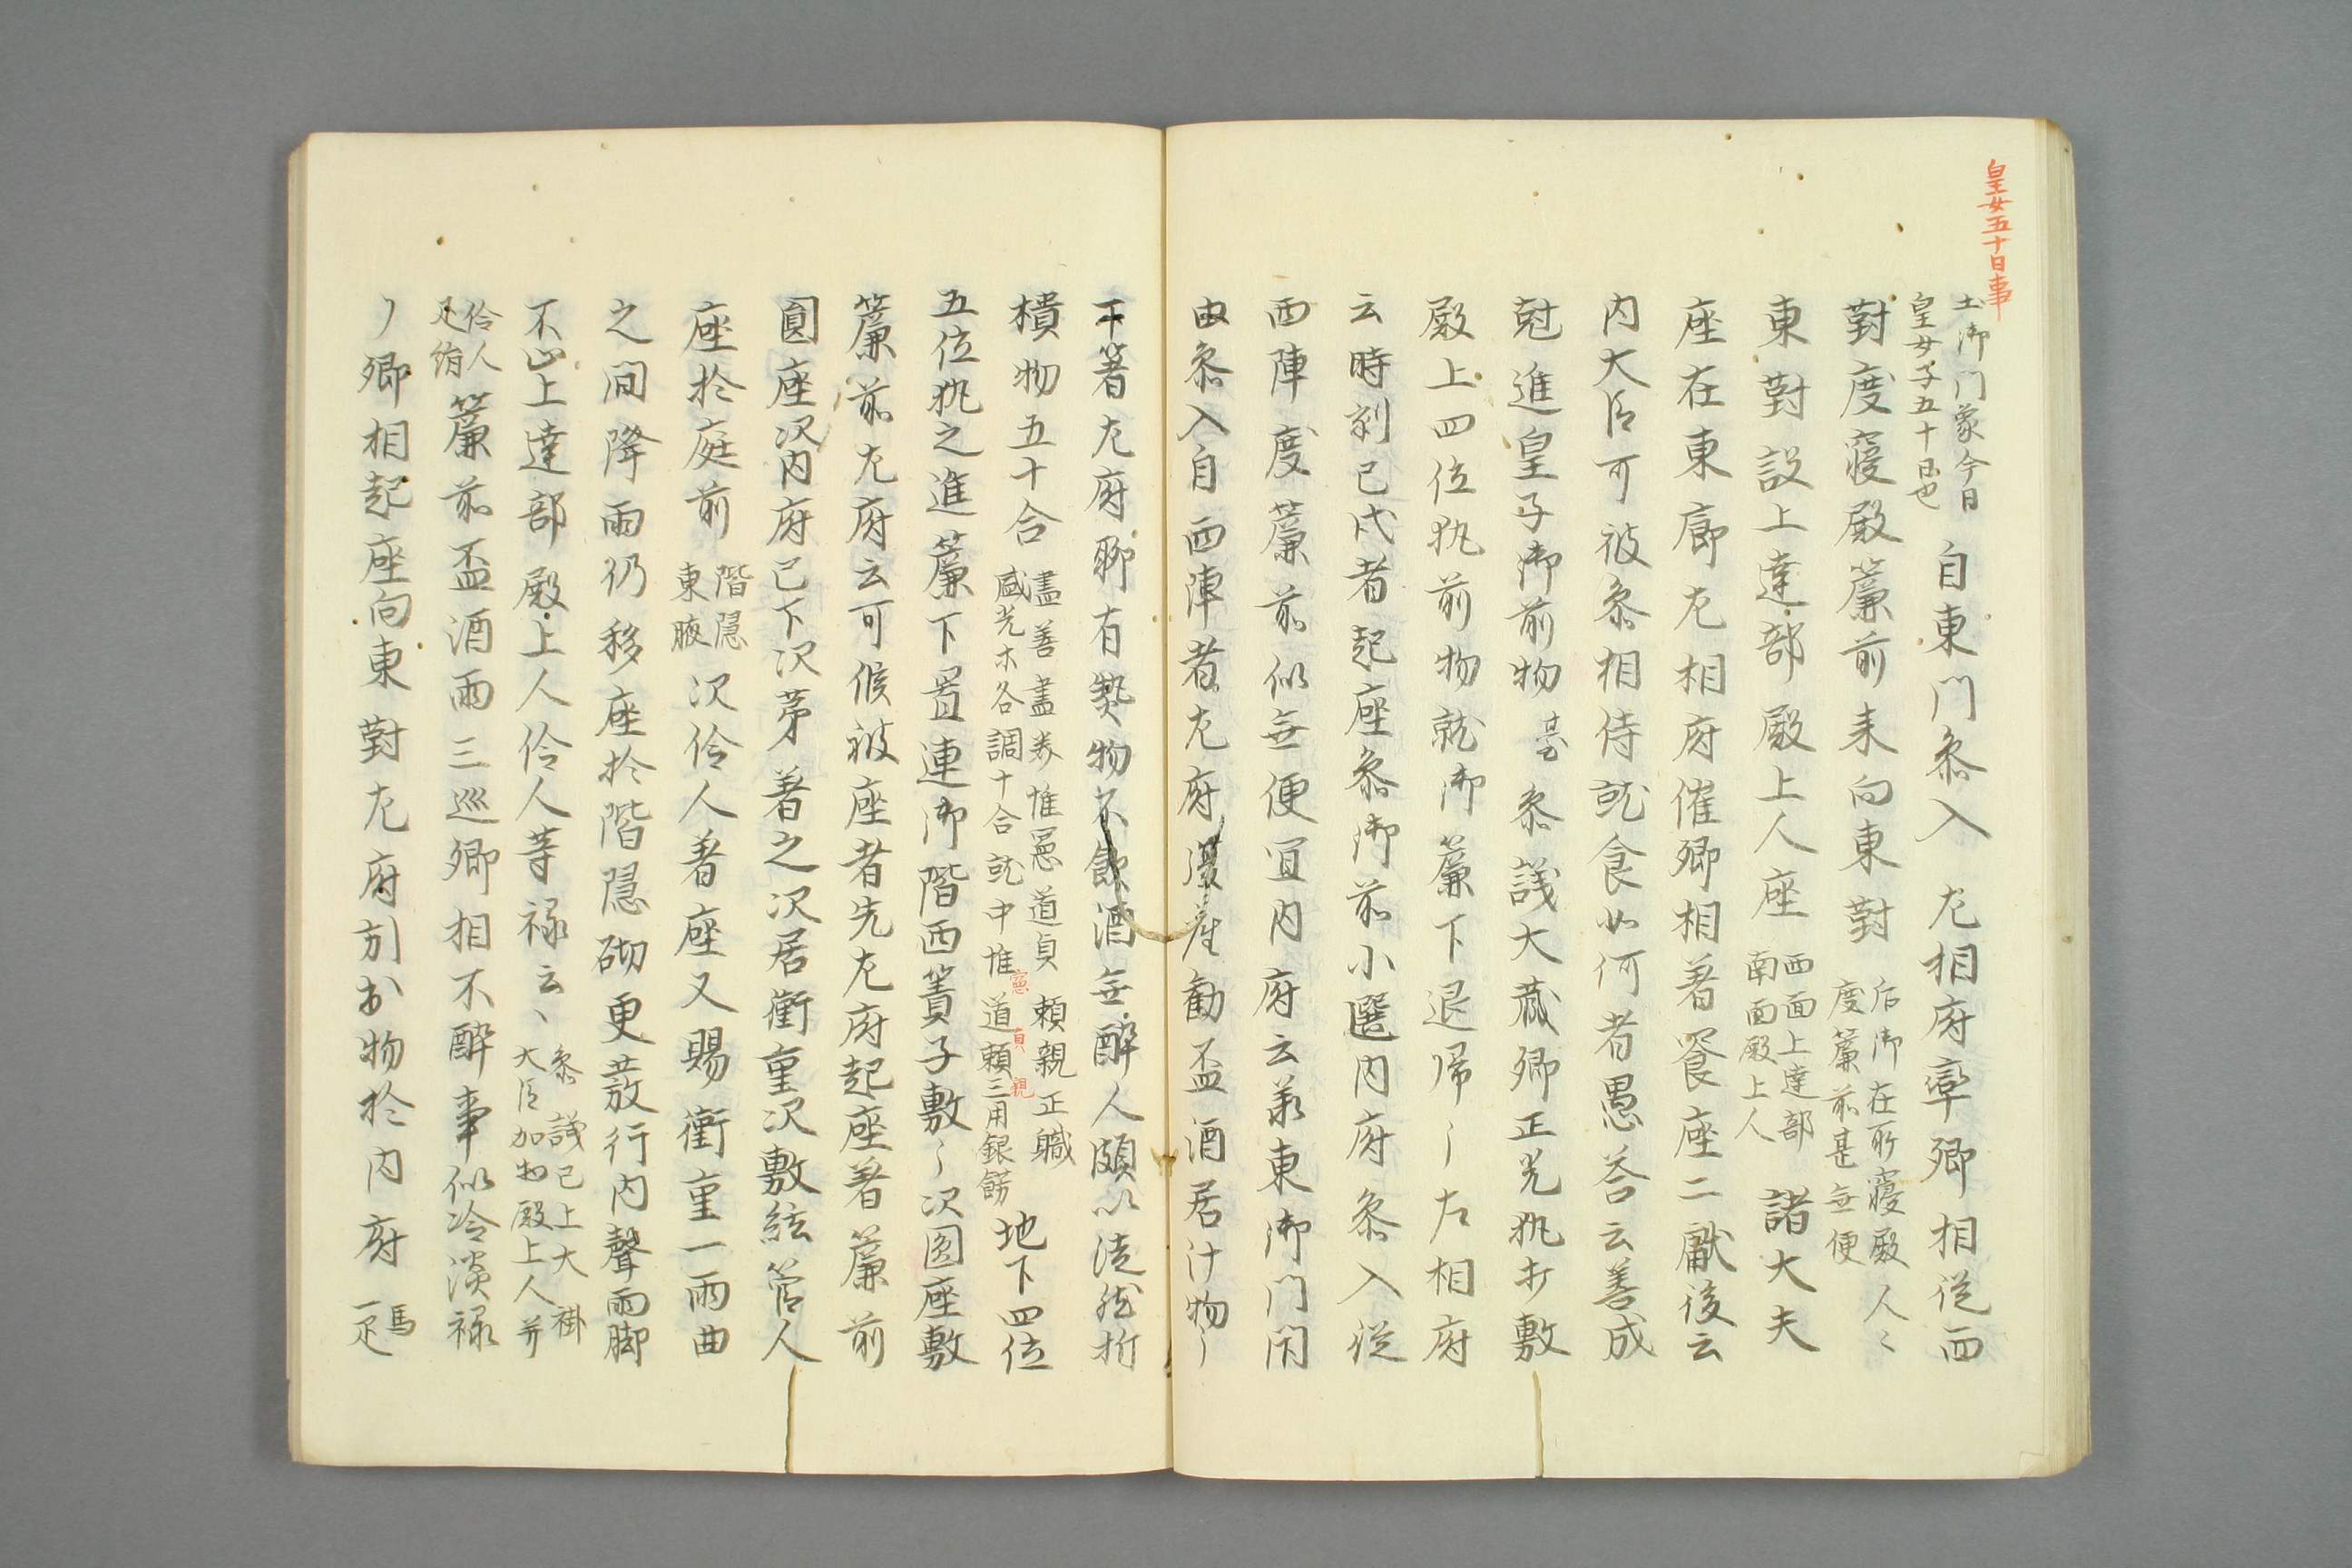 皇女五十日事
土御門家今日
皇女子五十日也
自東門参入左相府率卿相従西
對度寝殿簾前来向東對
后御在所寝殿人々
度簾前甚無便
東對設上達部殿上人座
西面上達部
南面殿上人
諸大夫
座在東廊左相府催卿相着饗座二獻後云
内大臣可被参相待就食如何者愚答云善成
尅進皇子御前物
臺
参議大蔵卿正光執打敷
殿上四位執前物就御簾下退帰〻左相府
云時剋已代者起座参御前小選内府参入従
西陣度簾前似無便宜内府云兼東御門閇
由参入自西陣者左府復座勸盃酒居汁物〻
下著左府聊有勢物不飲酒無酔人頗以淒然折
樻物五十合
盡善盡美惟憲道貞頼親正職
盛光木各調十合就中惟道頼三用銀餝
憲
貞
親
地下四位
五位執之進簾下置連御階西簀子敷〻次圓座敷
簾前左府云可候彼座者先左府起座著簾前
圓座次内府已下次苐著之次居衝重次敷絃管人
座於庭前
階隠
東腋
次伶人著座又賜衝重一兩曲
之間降雨仍移座於階隠砌更發行内聲雨脚
不止上達部殿上人伶人等禄云〻
参議已上大褂
大臣加物殿上人并
伶人
疋絹
簾前盃酒兩三巡卿相不酔事似冷淡禄
了卿相起座向東對左府別出物於内府
馬
一疋